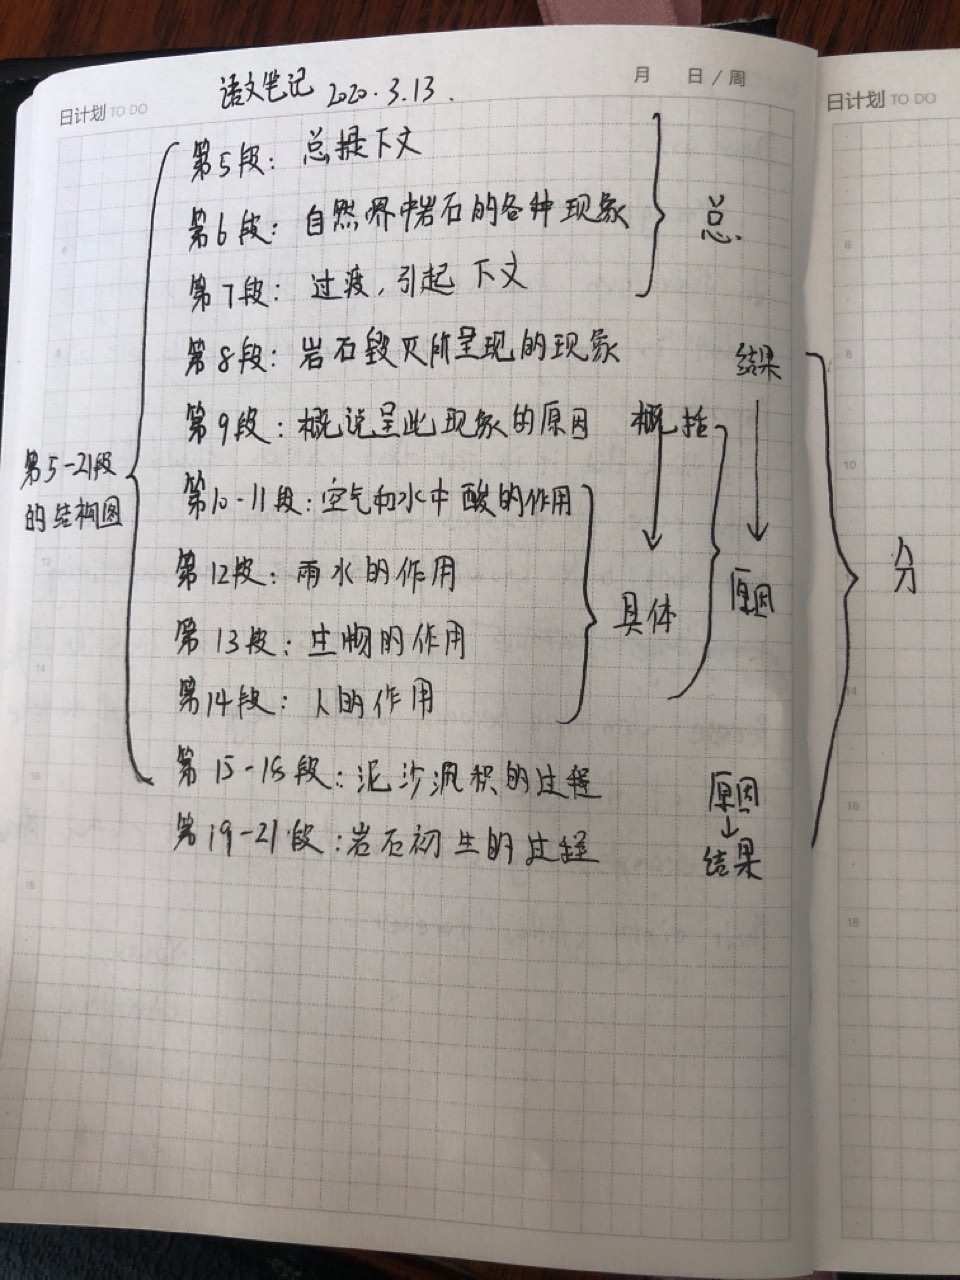 语文笔记 2020.3.13.
月 日/周
日计划 TO DO
日计划 TO DO
第5段：总提下文
第6段：自然界中岩石的各种现象
总
第7段：过渡，引起下文
第8段：岩石毁灭所呈现的现象
结果
第9段：概说呈此现象的原因
概括
第5-21段
的结构图
第10-11段：空气和水中酸的作用
分
第12段：雨水的作用
原因
具体
第13段：生物的作用
第14段：人的作用
第15-18段：泥沙沉积的过程
原因
↓
结果
第19-21段：岩石初生的过程
6
8
10
12
14
16
18